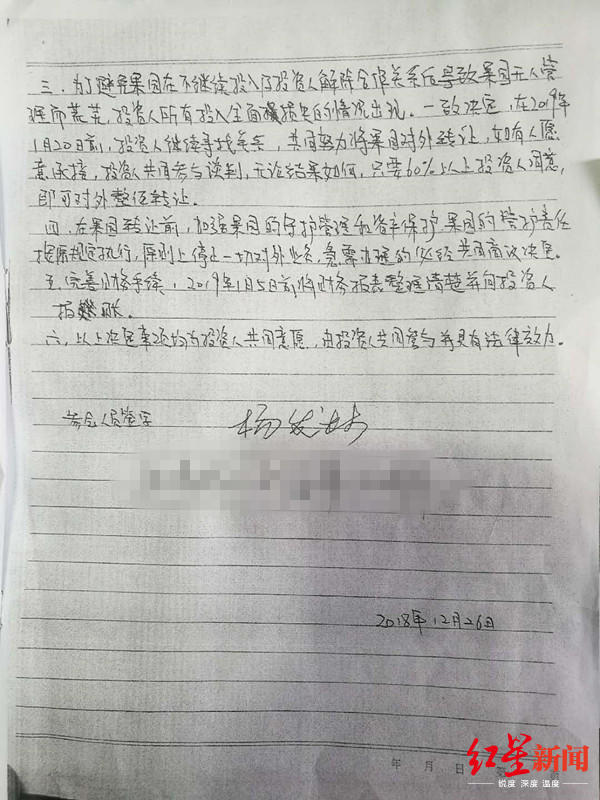 三.为了避免果园在不继续投入及投资人解除合作关系后导致果园无人管
理而荒芜,投资人所有投入全面损失的情况出现。一致决定,在2019年
1月20日前,投资人继续寻找买卖,共同努力将果园对外转让,如有人愿
意承接,投资人共同参与谈判,无论结果如何,只要60%以上投资人同意,
即可对外整体转让。
四.在果园转让前,加强果园的守护管理和资产保护,果园的管护责任
按原规定执行,原则上停止一切对外业务,急需办理的必经共同商议决定。
五.完善财务手续,2019年1月5日前将财务报表整理清楚并向投资人
报账。
六.以上决定事项均为投资人共同意愿,由投资人共同参与并具有法律效力。
参会人员签字
2018年12月26日
年 月 日
红星新闻
锐度 深度 温度